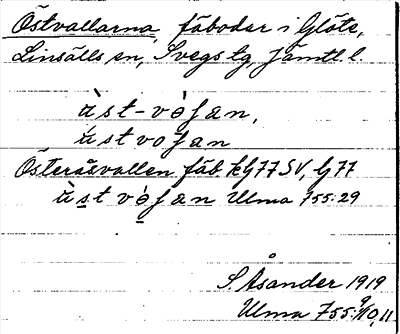 Östvallarna, fäbodar i Glöte,
Linsälls sn, Svegs tg, Jämtl. l.
ùst-vòʃan,
ústvoʃan
Österåsvallen fäb. kG77SV, G77
ùstvòʃan Ulma 755:29
S Åsander 1919
Ulma 755:9/10,11